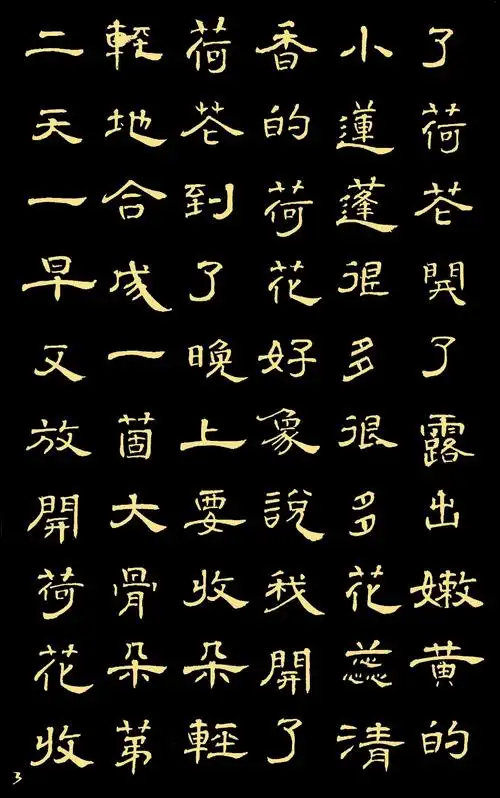 了荷芲開了露出嫩黄的
小蓮蓬很多很多花蕊清
香的荷花好象說我開了
荷芲到了晚上要收朵輕
輕地合成一箇大骨朵第
二天一早又放開荷花收
3